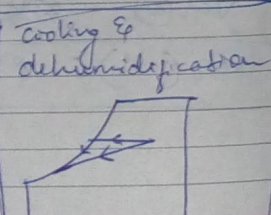 cooling &
dehumidification